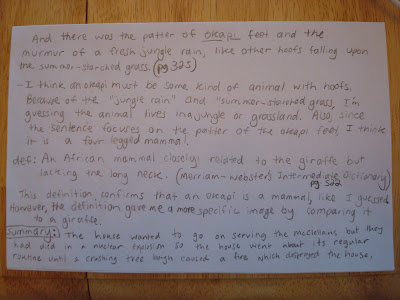 And there was the patter of okapi feet and the
murmur of a fresh jungle rain, like other hoofs falling upon
the summer-starched grass. (pg 325)
- I think an okapi must be some kind of animal with hoofs.
Because of the "jungle rain" and "summer-starched grass, I'm
guessing the animal lives in a jungle or grassland. Also, since
the sentence focuses on the patter of the okapi feet, I think
it is a four legged mammal.
def: An African mammal closely related to the giraffe but
lacking the long neck. (Merriam-Webster's Intermediate Dictionary)
pg 522
This definition confirms that an okapi is a mammal, like I guessed.
However, the definition gave me a more specific image by comparing it
to a giraffe.
Summary: The house wanted to go on serving the McClellans but they
had died in a nuclear explosion so the house went about its regular
routine until a crashing tree bough caused a fire which destroyed the house.